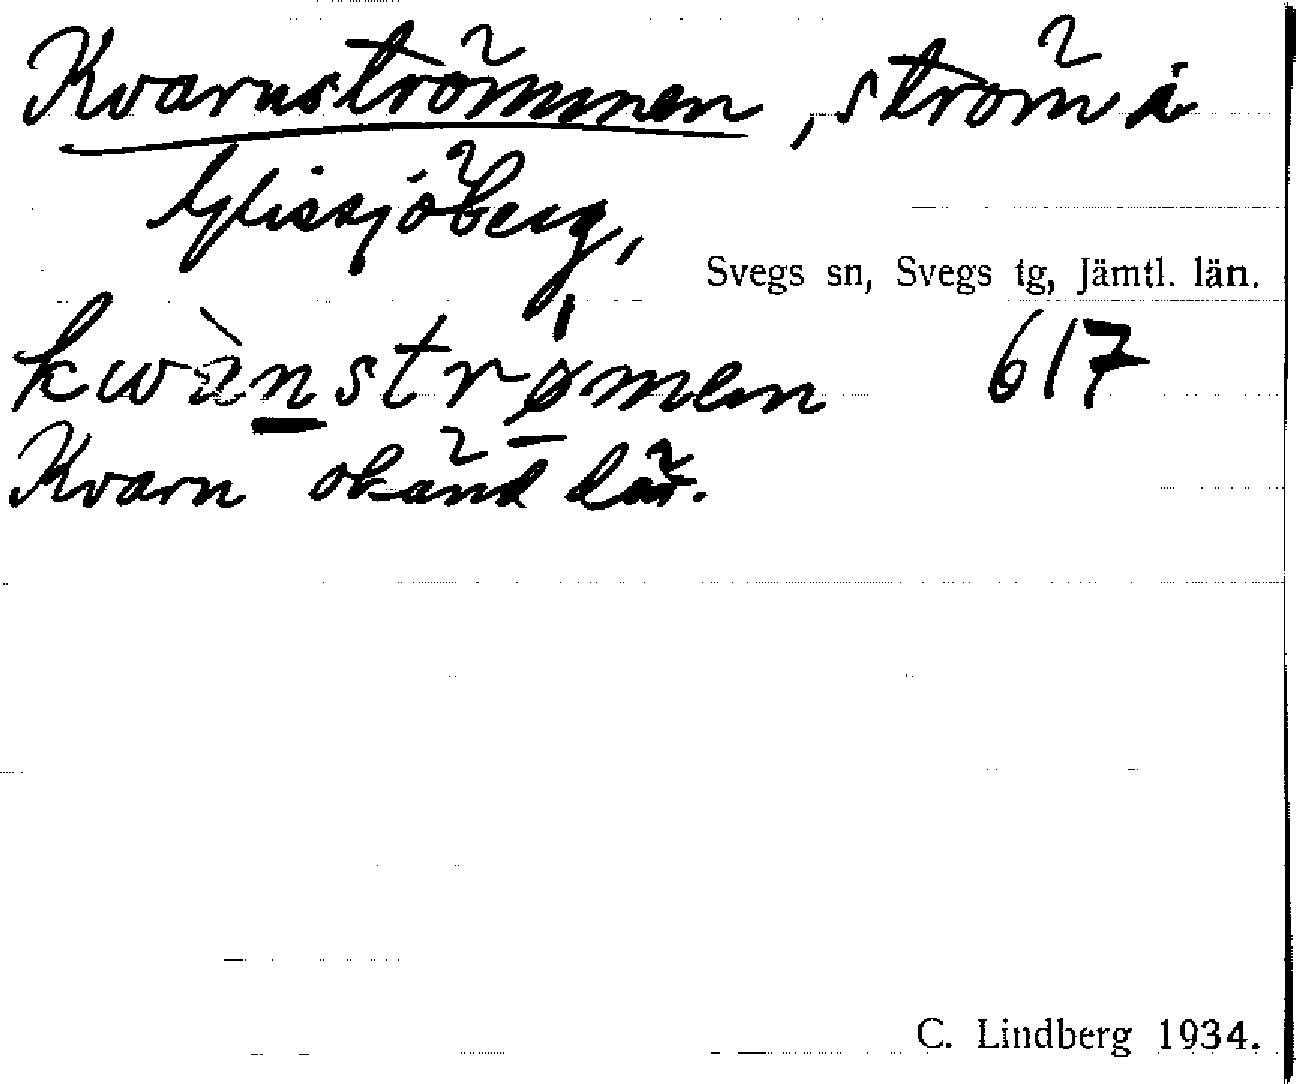 Kvarnströmmen, ström i
Glissjöberg,
Svegs sn, Svegs tg, Jämtl. län.
kwànstrømen 617
Kvarn okänd där.
C. Lindberg 1934.